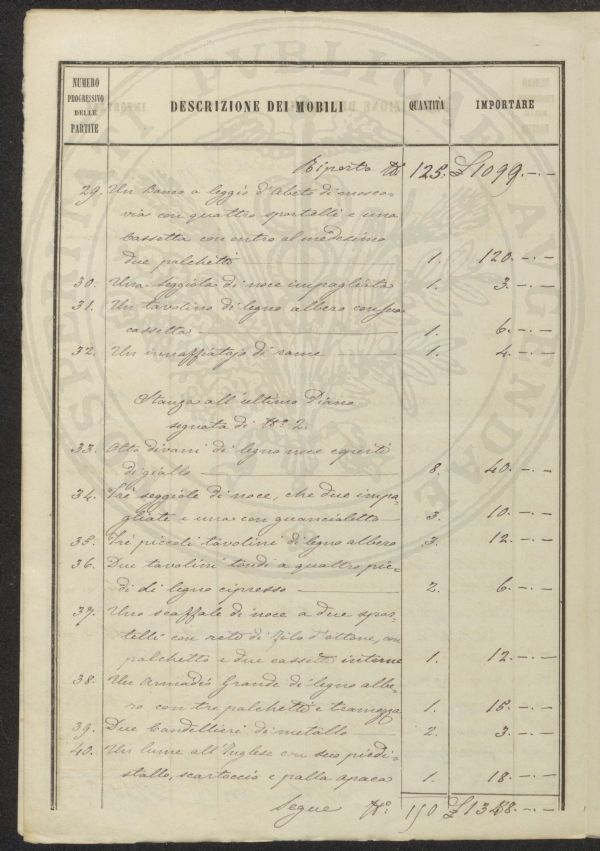 NUMERO PROGRESSIVO DELLE PARTITE DESCRIZIONE DEI MOBILI QUANTITÀ IMPORTARE
Riporto No 125. £ 1099. - . -
29. Un Banco a leggio d'Abete
via con quattro sportelli e una
Cassetta con entro al medesimo
due palchetti 1. 120. - . -
30. Una Seggiola di noce impagliata 1. 3. - . -
31. Un tavolino di legno albero con sua
cassetta 1. 6. - . -
32. Un innaffiatojo di rame 1. 4. - . -
Stanza all'ultimo Piano
segnata di No. 2.
33. Otto divani di legno noce coperti
di giallo 8. 40. - . -
34. Tré seggiole di noce, che due impa-
gliate e una con guancialetto 3. 10. - . -
35. Tré piccoli tavolini di legno albero 3. 12. - . -
36. Due tavolini tondi a quattro pie-
di di legno cipresso 2. 6. - . -
37. Uno scaffale di noce a due spor-
telli con rete di filo d'ottone, con
palchetto e due cassette interne 1. 12. - . -
38. Un Armadio Grande di legno albe-
ro con tre palchetti e tramezza 1. 15. - . -
39. Due Candellieri di metallo 2. 3. - . -
40. Un lume all'Inglese con suo piedi-
stallo, scartoccio e palla opaca 1. 18. - . -
Segue No. 150 £ 1348. - . -
PVBLICAE AVGENDAE